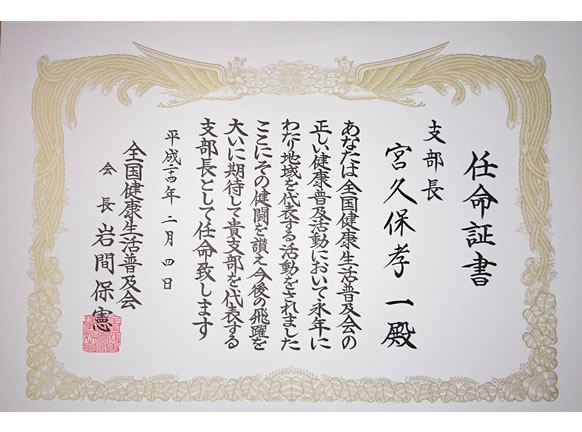 任命証書
支部長
宮久保孝一殿
あなたは全国健康生活普及会の
正しい健康普及活動において永年に
わたり地域を代表する活動をされました
ここにその健闘を讃え今後の飛躍を
大いに期待して貴支部を代表する
支部長として任命致します
平成二十四年二月四日
全国健康生活普及会
会長 岩間保憲